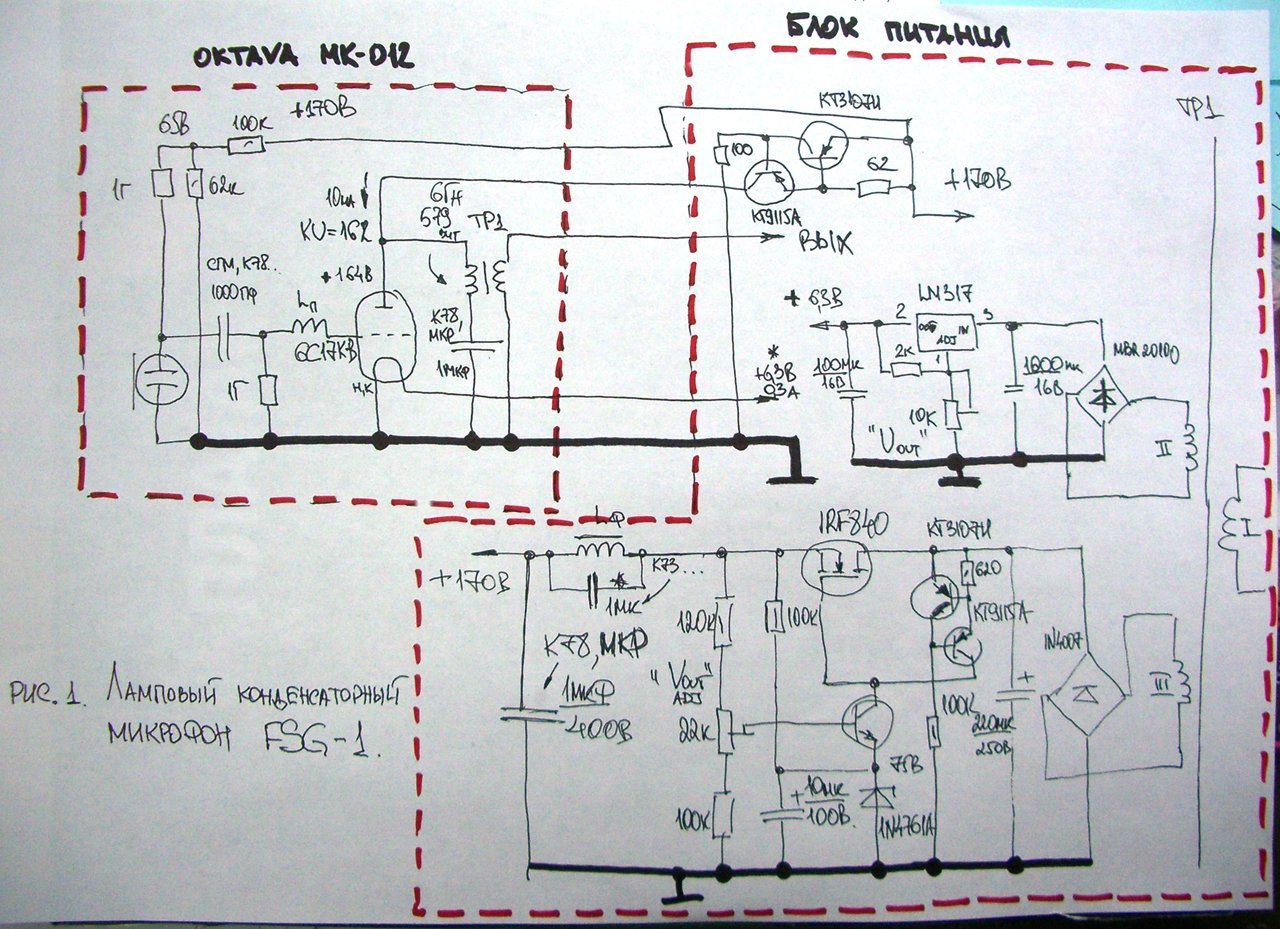 БЛОК ПИТАНИЯ
OKTAVA МК-012
+170В
65В
100К
1Г
62К
10мА
KU=162
6ГН
579
ТР1
+164В
СГМ, К78..
1000ПФ
Lп
6С17КВ
1Г
Н,К
К78,
МКР
1МКР
КТ3107И
100
62
КТ9115А
+170В
ВЫХ
ТР1
+6,3В
LM317
2
3
OUT
IN
ADJ
1
2К
100МК
16В
10К
"VOUT"
*
+6,3В
0,3А
MBR20100
16В
II
I
Lф
+170В
*
1МК
К73...
К78, МКР
1МКФ
400В
120К
"VOUT"
ADJ
22К
100К
100К
+
10мк
100В.
IRF840
КТ3107И
620
КТ9115А
75В
1N4761А
100К
+
220МК
250В
1N4007
III
РИС. 1. ЛАМПОВЫЙ КОНДЕНСАТОРНЫЙ
МИКРОФОН FSG-1.